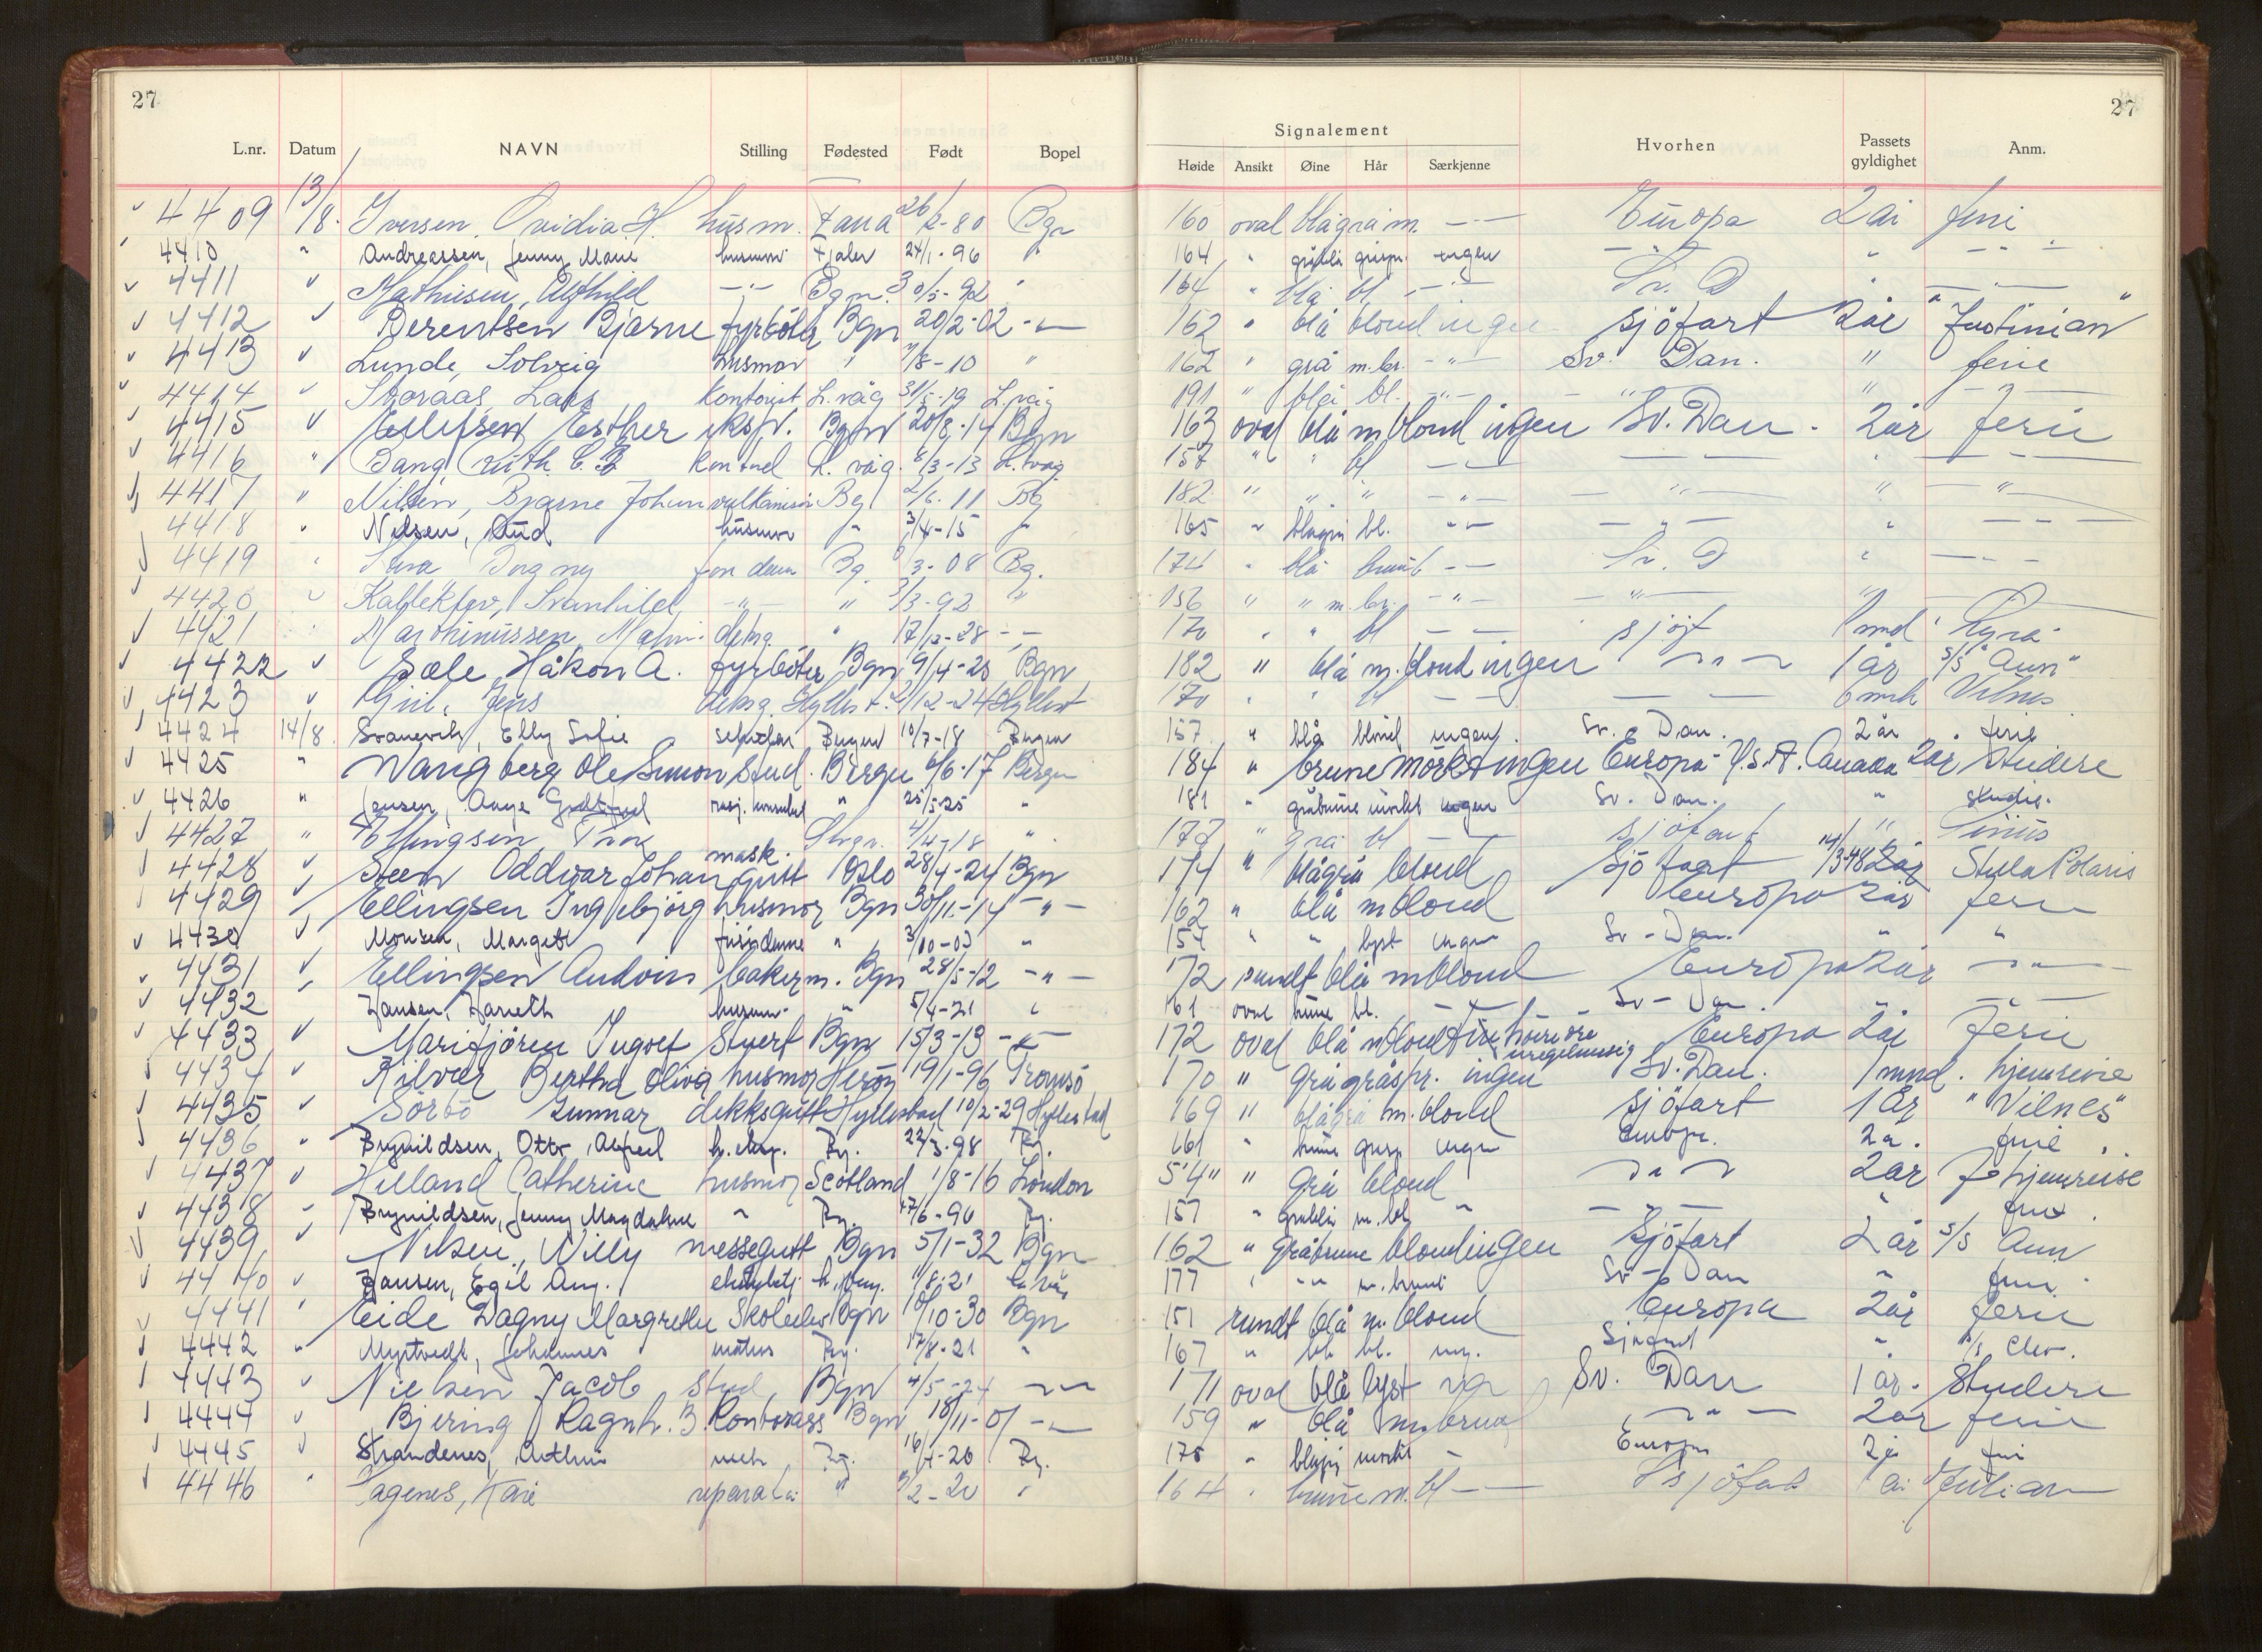 27 27
L.nr. Datum NAVN Stilling Fødested Født Bopel Signalement Hvorhen Passets gyldighet Anm.
Høide Ansikt Øine Hår Særkjenne
4409 13/8. Iversen, Ovidia H. husm. Fana 26/2-80 Bgn 160 oval blågrå m. -"- Europa 2 år ferie
4410 " Andreassen, Jenny Marie husmor Fjaler 24/1-96 " 164 " gråblå gråspr. ingen -"- " -"-
4411 " Mathiesen, Alfhild -"- Bgn. 30/5-92 " 164 " blå bl. -"- Sv. D " -"-
4412 " Berentsen Bjarne fyrböter Bgn 20/2-02 -"- 162 " blå blond ingen sjöfart 2år "Justinian"
4413 " Lunde, Solveig husmor " 7/8-10 " 162 " grå m.br. -"- Sv. Dan. " ferie
4414 " Storaas, Lars kontorist L.våg 31/5-19 L.våg 191 " blå bl. -"- " " -"-
4415 " Ellefsen Esther eksp. Bgn 20/8-14 Bgn 163 oval blå m blond ingen Sv. Dan. 2år Ferie
4416 " Bang Ruth kontord L.våg. 6/3-13 L.våg 157 " " bl -"- -"- " -"-
4417 " Nilsen, Bjarne Johan vulkanisør Bg 2/6-11 Bg 182 " " " -"- -"- " -"-
4418 " Nilsen, Aud husmor " 3/4-15 " 165 " blågrå bl. -"- -"- " -"-
4419 " Dagny Bg 3-08 Bg. 174 " blå brunt -"- Sv. D " -"-
4420 " Kalleklev, Svanhild -"- " 3-92 " 156 " " m.br. -"- -"- " -"-
4421 " Marthinussen, deksg. " 17/12-28 -"- 170 " " bl -"- sjöf 1 mnd Lyra
4422 " Sæle, Håkon A. fyrböter Bgn 9/4-28 Bgn 182 " blå m.blond ingen -"- 1 år s/s "Aun"
4423 " Jens deksg. Hyllest. 2/12-24 Hyllest 170 " " bl -"- -"- 6 mnd Vilnes
4424 14/8. Svanevik, Elly Sofie Bergen 10/7-18 Bergen 157 " blå blond ingen. Sv. Dan. 2 år ferie
4425 " Wangberg Ole Simon stud. Bergen 6/6-17 Bergen 184 " brune mörkt ingen Europa - U.S.A. Canada 2år Studere
4426 " Jensen, Aage " 25/5-25 " 181 " gråbrune mörkt ingen Sv. Dan. " studie.
4427 " Ellingsen, 4/4-18 " 177 " grå bl -"- sjöfart " Sirius
4428 " Steen Oddvar Johan mask. gutt Oslo 28/4-24 Bgn 174 " blågrå blond Sjöfart 14/3-48 2år Stella Polaris
4429 " Ellingsen Ingebjörg husmor Bgn 30/11-14 -"- 162 " blå m blond Europa 2år ferie
4430 " Monsen, Margit frisördame " 3/10-03 " 154 " " lyst ingen Sv - Dan. " "
4431 " Ellingsen Audvin bakerm. Bgn 28/5-12 -"- 172 rundt blå m blond Europa 2år -"-
4432 " Hansen, husmor " 5/4-21 " 161 oval brune bl. -"- Sv - Dan. " -"-
4433 " Marifjören Ingolf Stuert Bgn 15/3-13 -"- 172 oval blå m blond höire öre uregelmessig Europa 2år Ferie
4434 " Kilvær Bertha Olivia husmor Heröy 19/1-96 Tromsö 170 " grå gråspr. ingen Sv. Dan. 1 mnd. hjemreise
4435 " Sörbö Gunnar dekksgutt Hyllestad 10/2-29 Hyllestad 169 " blågrå m.blond sjöfart 1 år "Vilnes"
4436 " Brynildsen, Otto Alfred Bg. 22/3-98 Bg. 161 " brune gråsp ingen Europa. 2 år. ferie.
4437 " Hilland Catherine husmor Scotland 1/8-16 London 5'4" " grå blond -"- 2år hjemreise
4438 " Brynildsen, Jenny Magdalene " Bg. 17/6-90 Bg. 157 " gråblå m. bl " -"- " ferie.
4439 " Nilsen, Willy messegutt Bgn 5/1-32 Bgn 162 " gråbrune blond ingen sjöfart 2 år s/s Aun
4440 " Hansen, Egil Aug. 1/8-21 177 " -"- m. brunt Sv - Dan " ferie.
4441 " Eide Dagny Margrethe Skoleelev Bgn 18/10-30 Bgn 151 rundt blå m.blond Europa 2år ferie
4442 " Myrtvedt, Johannes matros Bg. 17/8-21 " 167 " blå bl. ing. Sjöfart " s/s Cleo.
4443 " Nielsen Jacob Stud. Bgn 4/5-24 -"- 171 oval blå lyst ign Sv. Dan 1 år. Studere
4444 " Bjering Ragnh. B. Kontorass Bgn 18/11-01 -"- 159 " blå m.brun -"- 2år ferie
4445 " Strandenes, Arthur mek Bg. 16/4-20 Bg. 178 " blågrå mörkt - Europa 2 år ferie
4446 " Fagenes, Kåre reparatör " 9/2-20 " 164 " brune m. bl -"- sjöfart 1 år Julian